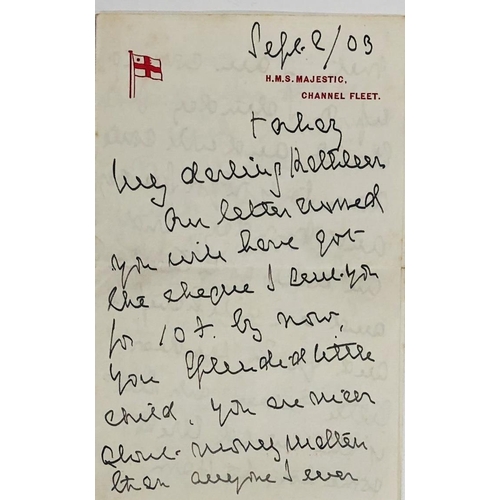 Sept. 2/03
H.M.S. MAJESTIC,
CHANNEL FLEET.
Torbay
My darling Kathleen
Our letter crossed
you will have got
the cheque I sent you
for 10£. by now,
you splendid little
child, you are nicer
about money matters
than anyone I ever